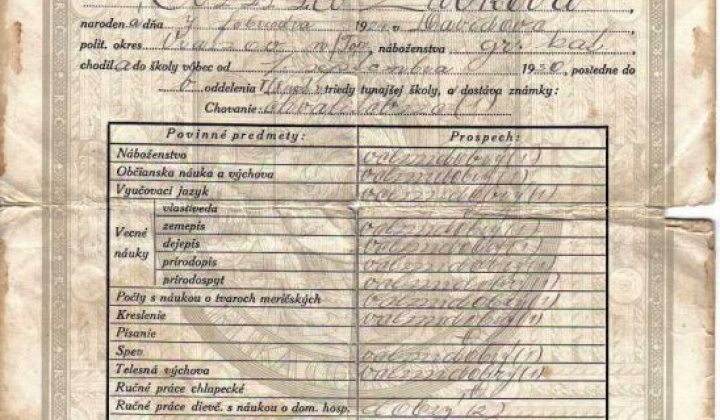 narodená dňa 7 februára 19 v Davidove
polit. okres n/Top., náboženstva gr. kat.
chodila do školy vôbec od 1. septembra 1930, posledne do
V oddelenia triedy tunajšej školy, a dostáva známky:
Chovanie: chvalitebné (1)
Povinné predmety: Prospech:
Náboženstvo veľmi dobrý (1)
Občianska náuka a výchova veľmi dobrý (1)
Vyučovací jazyk veľmi dobrý (1)
Vecné náuky
vlastiveda
zemepis veľmi dobrý (1)
dejepis veľmi dobrý (1)
prírodopis veľmi dobrý (1)
prírodospyt veľmi dobrý (1)
Počty s náukou o tvaroch meričských veľmi dobrý (1)
Kreslenie veľmi dobrý (1)
Písanie
Spev veľmi dobrý (1)
Telesná výchova veľmi dobrý (1)
Ručné práce chlapecké
Ručné práce dievč. s náukou o dom. hosp. dobrý (2)